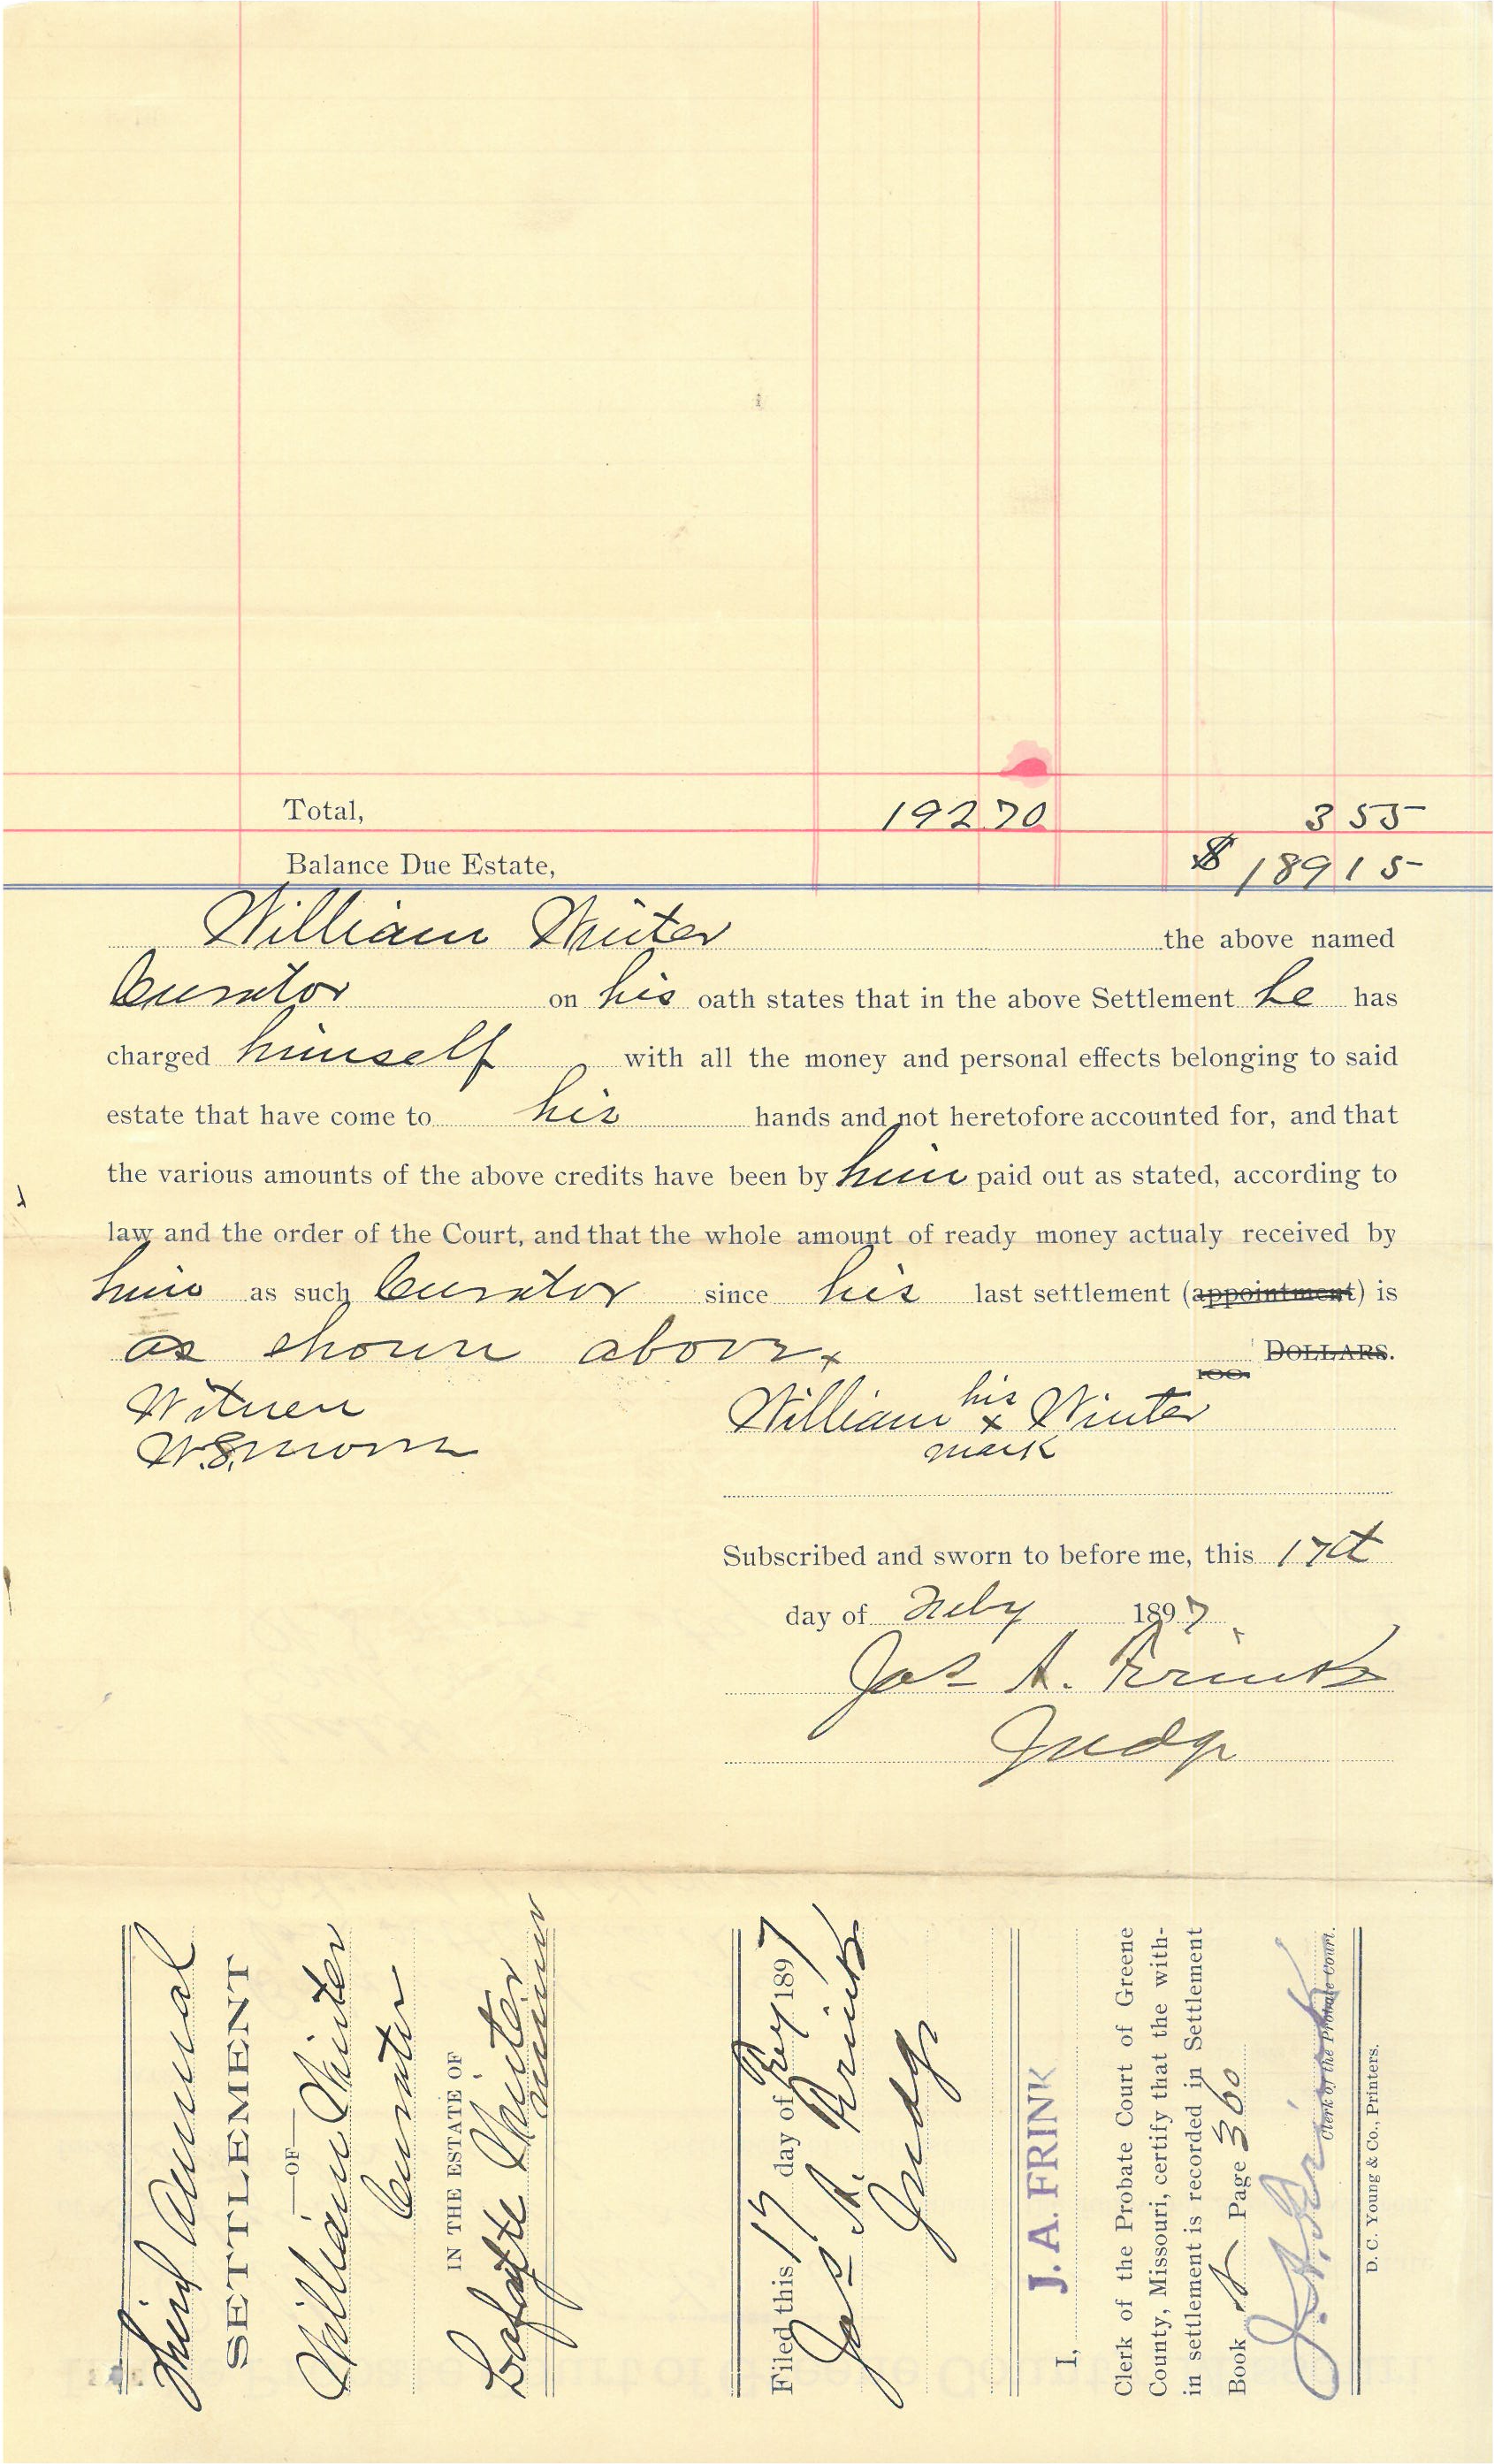 Total, 192 70 3 55
Balance Due Estate, $ 189 15
William Winter the above named
Curator on his oath states that in the above Settlement he has
charged himself with all the money and personal effects belonging to said
estate that have come to his hands and not heretofore accounted for, and that
the various amounts of the above credits have been by him paid out as stated, according to
law and the order of the Court, and that the whole amount of ready money actualy received by
him as such Curator since his last settlement (appointment) is
as shown above DOLLARS.
100
Witness
his
William x Winter
mark
Subscribed and sworn to before me, this 17th
day of Feby 1897
Jas A. Frink
Judge
Third Annual
SETTLEMENT
—OF—
William Winter
Curator
IN THE ESTATE OF
Lafayette Winter
minor
Filed this 17 day of Feby 1897
Jas A. Frink
Judge
I, J. A. FRINK
Clerk of the Probate Court of Greene
County, Missouri, certify that the with-
in settlement is recorded in Settlement
Book Page 360
J. A. Frink
Clerk of the Probate Court.
D. C. Young & Co., Printers.